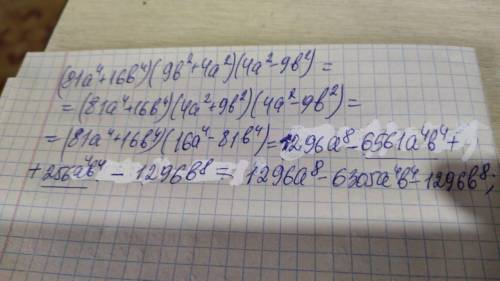 (81a⁴+16b⁴)(9b²+4a²)(4a²-9b²)=
=(81a⁴+16b⁴)(4a²+9b²)(4a²-9b²)=
=(81a⁴+16b⁴)(16a⁴-81b⁴)=1296a⁸-6561a⁴b⁴+
+256a⁴b⁴-1296b⁸=1296a⁸-6305a⁴b⁴-1296b⁸;